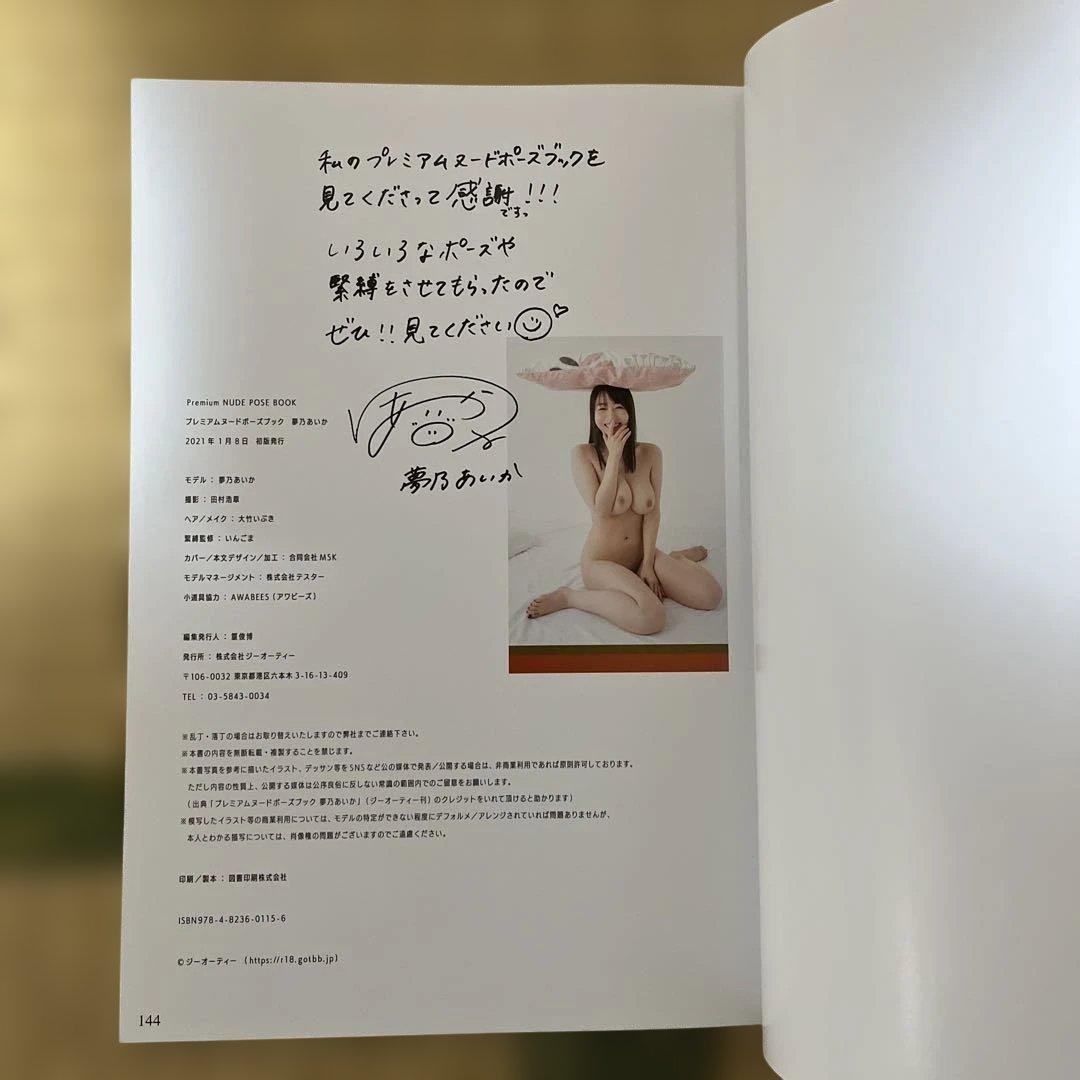 私のプレミアムヌードポーズブックを
見てくださって感謝ですっ!!!
いろいろなポーズや
緊縛をさせてもらったので
ぜひ!!見てください
夢乃あいか
Premium NUDE POSE BOOK
プレミアムヌードポーズブック 夢乃あいか
2021年1月8日 初版発行
モデル：夢乃あいか
撮影：田村浩章
ヘア／メイク：大竹いぶき
緊縛監修：いんごま
カバー／本文デザイン／加工：合同会社MSK
モデルマネージメント：株式会社テスター
小道具協力：AWABEES（アワビーズ）
編集発行人：董俊博
発行所：株式会社ジーオーティー
〒106-0032 東京都港区六本木3-16-13-409
TEL：03-5843-0034
※乱丁・落丁の場合はお取り替えいたしますので弊社までご連絡下さい。
※本書の内容を無断転載・複製することを禁じます。
※本書写真を参考に描いたイラスト、デッサン等をSNSなど公の媒体で発表／公開する場合は、非商業利用であれば原則許可しております。
ただし内容の性質上、公開する媒体は公序良俗に反しない常識の範囲内でのご留意をお願いします。
（出典「プレミアムヌードポーズブック 夢乃あいか」（ジーオーティー刊）のクレジットをいれて頂けると助かります）
※模写したイラスト等の商業利用については、モデルの特定ができない程度にデフォルメ／アレンジされていれば問題ありませんが、
本人とわかる描写については、肖像権の問題がございますのでご遠慮ください。
印刷／製本：図書印刷株式会社
ISBN978-4-8236-0115-6
©ジーオーティー （https://r18.gotbb.jp）
144